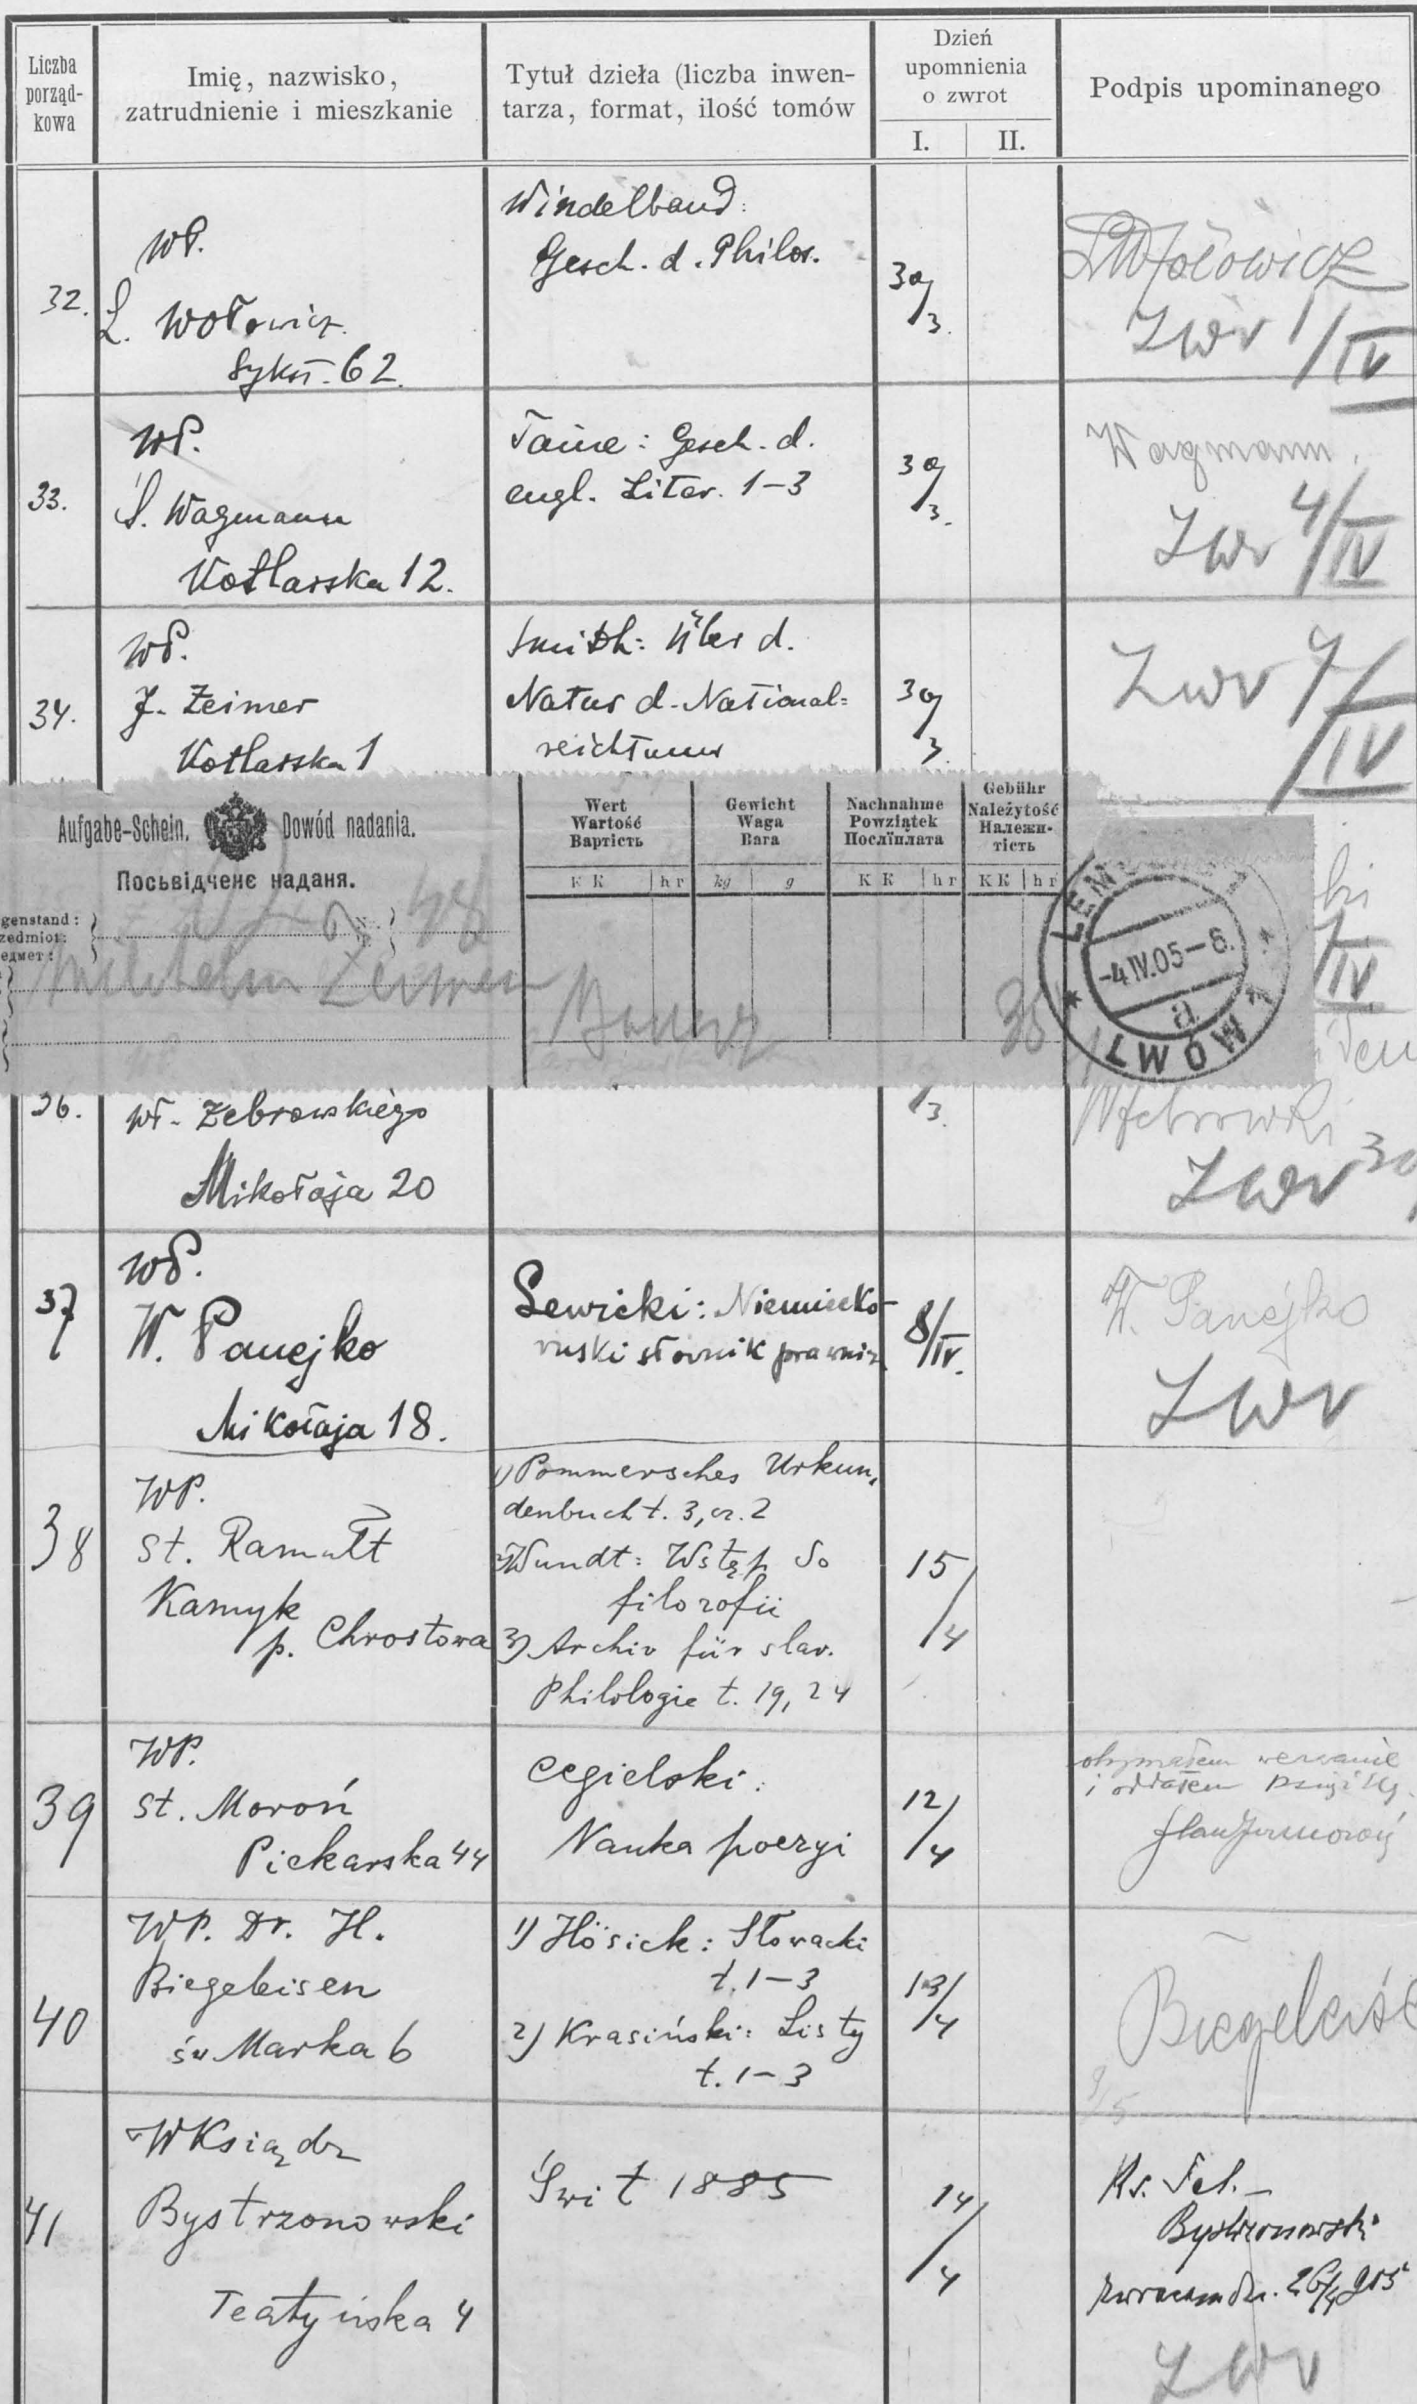 Liczba
porząd-
kowa
Imię, nazwisko,
zatrudnienie i mieszkanie
Tytuł dzieła (liczba inwen-
tarza, format, ilość tomów
Dzień
upomnienia
o zwrot
I. II.
Podpis upominanego
32.
WP.
L. Wołowicz.
Sykst. 62.
Windelband:
Gesch. d. Philos.
30/3.
Wołowicz
Zwr 1/IV
33.
WP.
S. Wagmann
Kotlarska 12.
Taine: Gesch. d.
engl. Liter. 1-3
30/3.
Wagmann.
Zwr 4/IV
34.
WP.
J. Zeimer
Kotlarska 1
Smith: Über d.
Natur d. National=
reichtums
30/3.
Zwr 7/IV
Aufgabe-Schein. Dowód nadania.
Посьвідченє наданя.
genstand:
zedmiot:
едмет:
48
Zeimer
Wert
Wartość
Вартість
K K hr
Gewicht
Waga
Вага
kg g
Nachnahme
Powziątek
Послїплата
K K hr
Gebühr
Należytość
Належи-
тість
KK hr
LEMBERG 1
-4.IV.05-6.
a
LWÓW 1
IV
36.
Wł. Żebrowskiego
Mikołaja 20
/3.
Zwr 30
37
WP.
W. Panejko
Mikołaja 18.
Lewicki: Niemiecko-
ruski słownik prawnicz.
8/IV.
W. Panejko
Zwr
38
WP.
St. Ramułt
Kamyk
p. Chrostowa
1) Pommersches Urkun-
denbuch t. 3, cz. 2
2) Wundt: Wstęp do
filozofii
3) Archiv für slav.
Philologie t. 19, 24
15/4
39
WP.
St. Moroń
Piekarska 44
Cegielski:
Nauka poezyi
12/4
otrzymałem wezwanie
i oddałem książkę.
40
WP. Dr. H.
Biegeleisen
św Marka 6
1) Hösick: Słowacki
t. 1-3
2) Krasiński: Listy
t. 1-3
13/4
Biegeleise
9/5
41
WKsiądz
Bystrzonowski
Teatyńska 4
Świt 1885
14/4
Ks. Fel.
Bystrzonowski
zwracam dn. 26/4 905
Zwr